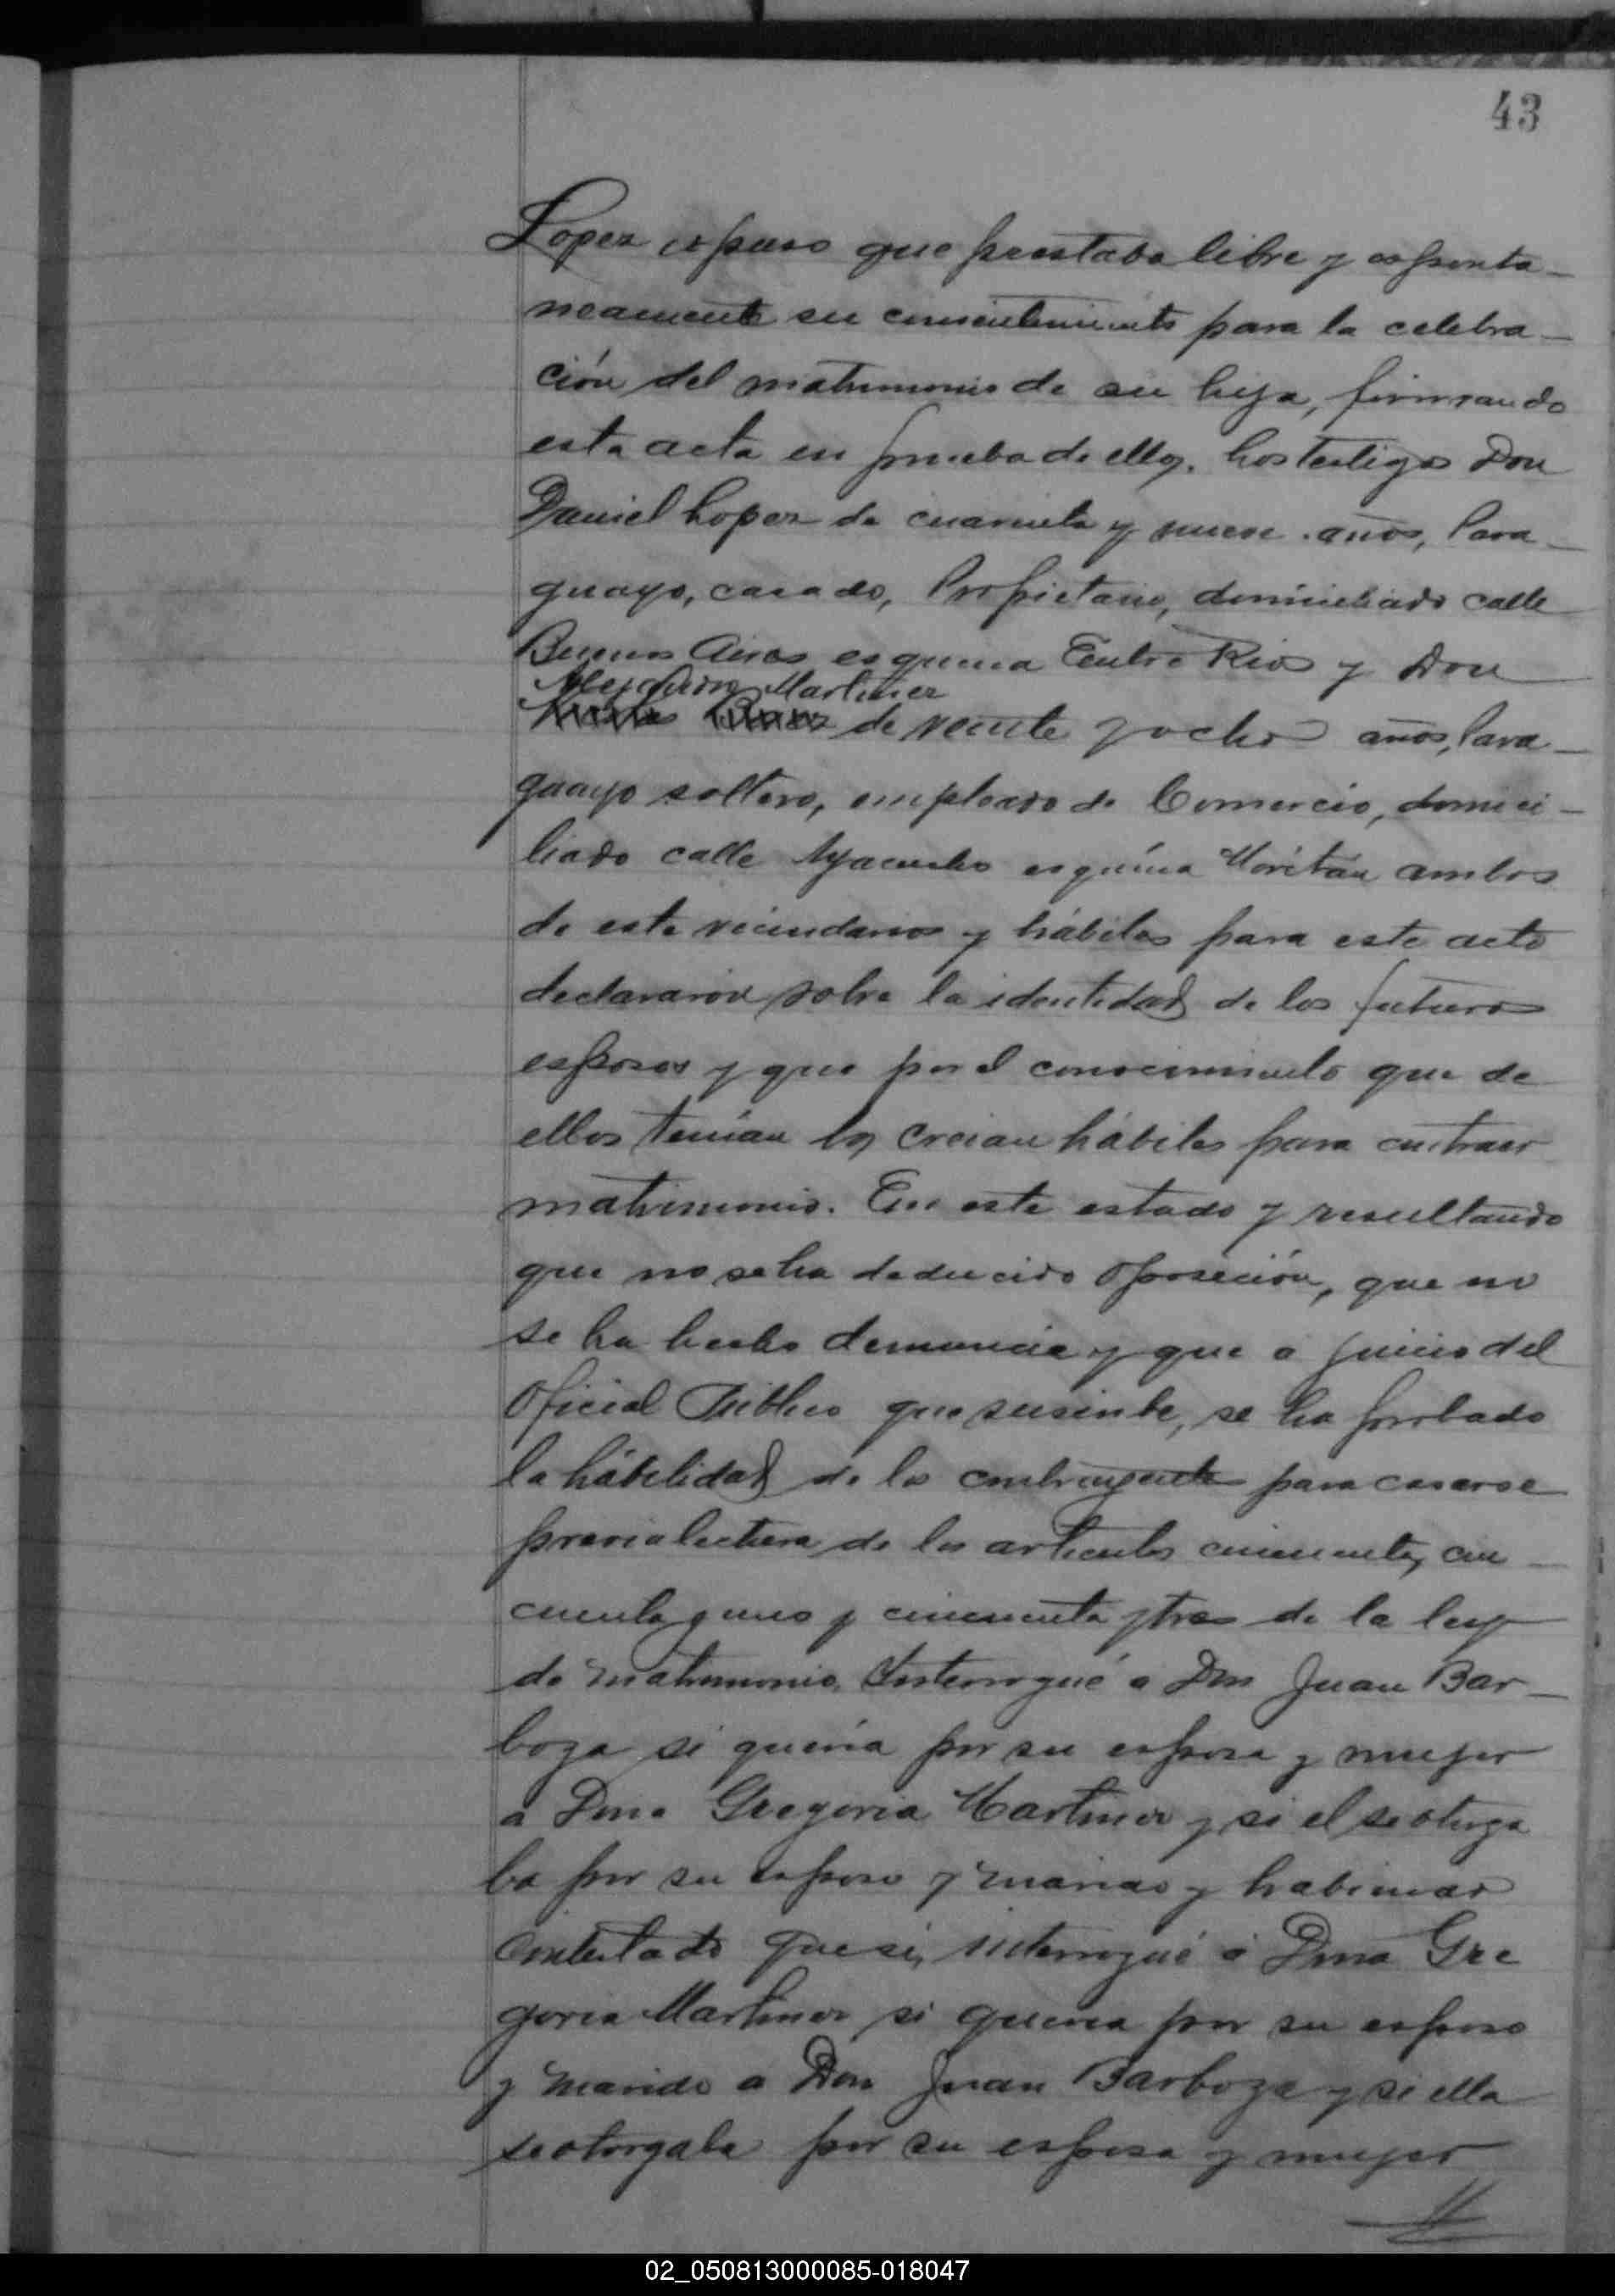 43
Lopez expuso que prestaba libre y esponta-
neamente su consentimiento para la celebra-
ción del matrimonio de su hija, firmando
esta acta en prueba de ello. Los testigos Don
Daniel Lopez de cuarenta y nueve años, Para-
guayo, casado, Propietario, domiciliado calle
Buenos Aires esquina Entre Rios y Don
Alejandro Martinez
de veinte y ocho años, Para-
guayo soltero, empleado de Comercio, domici-
liado calle Ayacucho esquina Moritán ambos
de este vecindario y hábiles para este acto
declararon sobre la identidad de los futuros
esposos y que por el conocimiento que de
ellos tenían los creian hábiles para contraer
matrimonio. En este estado y resultando
que no se ha deducido oposición, que no
se ha hecho denuncia y que a juicio del
Oficial Público que suscribe, se ha probado
la hábilidad de los contrayentes para casarse
previa lectura de los articulos cincuenta, cin-
cuenta y uno y cincuenta y tres de la ley
de matrimonio Interrogué a Don Juan Bar-
boza si quería por su esposa y mujer
a Dona Gregoria Martinez y si el se otorga
ba por su esposo y marido y habiendo
contestado que si, interrogué á Dona Gre
goria Martinez si queria por su esposo
y marido a Don Juan Barboza y si ella
se otorgaba por su esposa y mujer
02_050813000085-018047